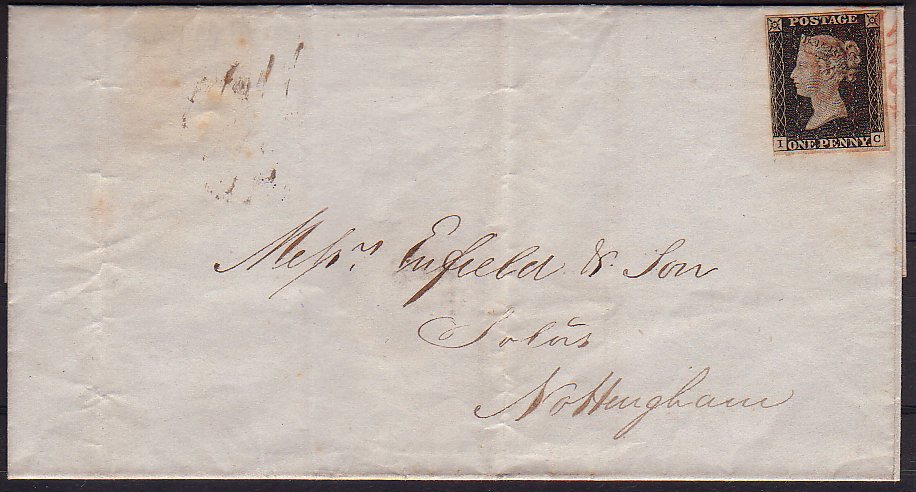 POSTAGE
I C
ONE PENNY
Messrs. Enfield & Son
Solrs
Nottingham